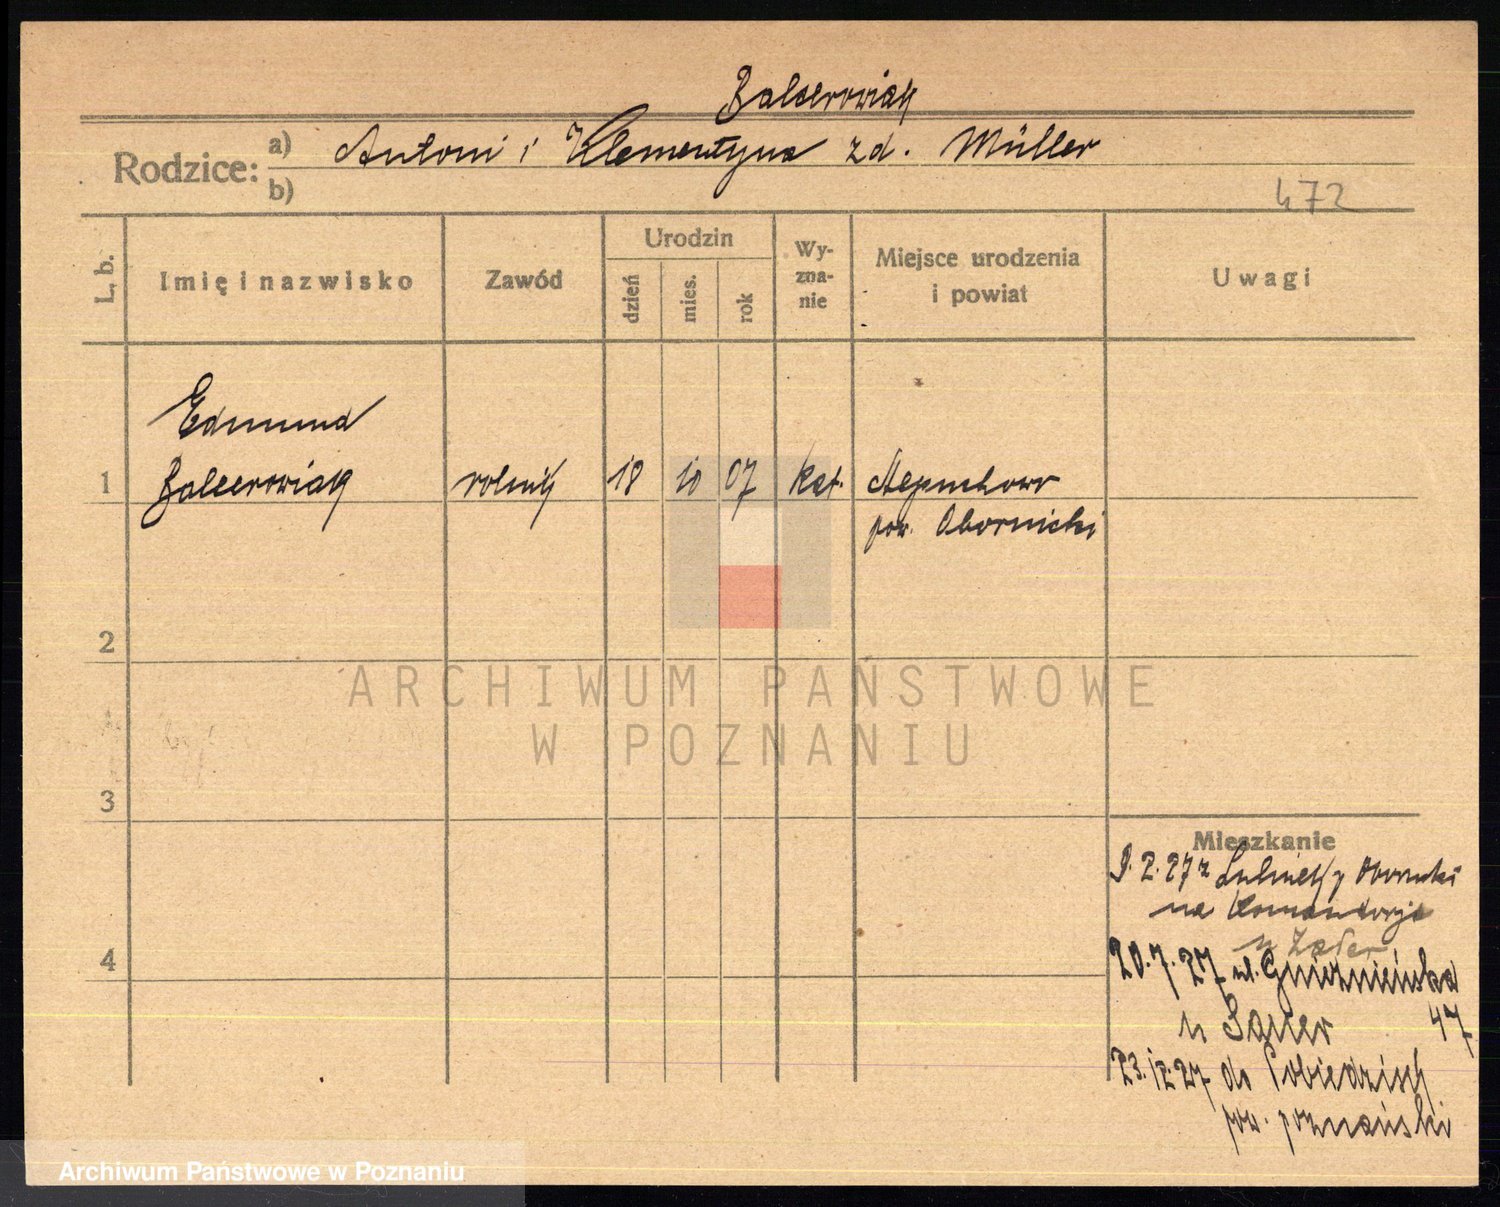 Balcerowiak
Rodzice: a) Antoni i Klementyna zd. Müller
b)
472
L. b.
Imię i nazwisko
Zawód
Urodzin
dzień
mies.
rok
Wy-
zna-
nie
Miejsce urodzenia
i powiat
Uwagi
Edmund
1 Balcerowiak rolnik 18 10 07 kat.
pow. Obornicki
2
ARCHIWUM PAŃSTWOWE
W POZNANIU
3
Mieszkanie
9. 2. 27 z Obornicki
na
4
20. 7. 27 ul. Gnieźnieńska
47
23. 12. 27 do Pobiedzisk
pow. poznański
Archiwum Państwowe w Poznaniu